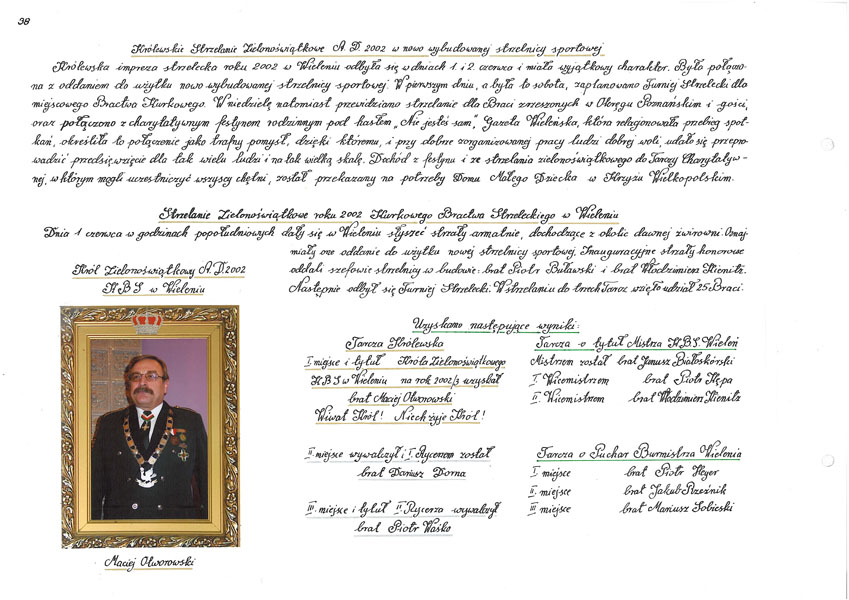 38
Królewskie Strzelanie Zielonoświątkowe A.D. 2002 w nowo wybudowanej strzelnicy sportowej
Królewska impreza strzelecka roku 2002 w Wieleniu odbyła się w dniach 1 i 2 czerwca i miała wyjątkowy charakter. Była połączo-
na z oddaniem do użytku nowo wybudowanej strzelnicy sportowej. W pierwszym dniu, a była to sobota, zaplanowano Turniej Strzelecki dla
miejscowego Bractwa Kurkowego. W niedzielę natomiast przewidziano strzelanie dla Braci zrzeszonych w Okręgu Poznańskim i gości,
oraz połączono z charytatywnym festynem rodzinnym pod hasłem „Nie jesteś sam". Gazeta Wieleńska, która relacjonowała przebieg spot-
kań, określiła to połączenie jako trafny pomysł, dzięki któremu, i przy dobrze zorganizowanej pracy ludzi dobrej woli, udało się przepro-
wadzić przedsięwzięcie dla tak wielu ludzi i na tak wielką skalę. Dochód z festynu i ze strzelania zielonoświątkowego do Tarczy Charytatyw-
nej, w którym mogli uczestniczyć wszyscy chętni, został przekazany na potrzeby Domu Małego Dziecka w Krzyżu Wielkopolskim.
Strzelanie Zielonoświątkowe roku 2002 Kurkowego Bractwa Strzeleckiego w Wieleniu
Dnia 1 czerwca w godzinach popołudniowych dały się w Wieleniu słyszeć strzały armatnie, dochodzące z okolic dawnej żwirowni. Oznaj-
miały one oddanie do użytku nowej strzelnicy sportowej. Inauguracyjne strzały honorowe
oddali szefowie strzelnicy w budowie: brat Piotr Buławski i brat Włodzimierz Kienitz.
Następnie odbył się Turniej Strzelecki. W strzelaniu do trzech Tarcz wzięło udział 25 Braci.
Król Zielonoświątkowy A.D. 2002
KBS w Wieleniu
Maciej Olworowski
Uzyskano następujące wyniki:
Tarcza Królewska
I miejsce i tytuł Króla Zielonoświątkowego
KBS w Wieleniu na rok 2002/3 uzyskał
brat Maciej Olworowski
Wiwat Król! Niech żyje Król!
II miejsce wywalczył i I Rycerzem został
brat Dariusz Dorna
III miejsce i tytuł II Rycerza wywalczył
brat Piotr Waśko
Tarcza o tytuł Mistrza KBS Wieleń
Mistrzem został brat Janusz Białoskórski
I Wicemistrzem brat Piotr Kępa
II Wicemistrzem brat Włodzimierz Kienitz
Tarcza o Puchar Burmistrza Wielenia
I miejsce brat Piotr Heyer
II miejsce brat Jakub Rzeźnik
III miejsce brat Mariusz Sobieski